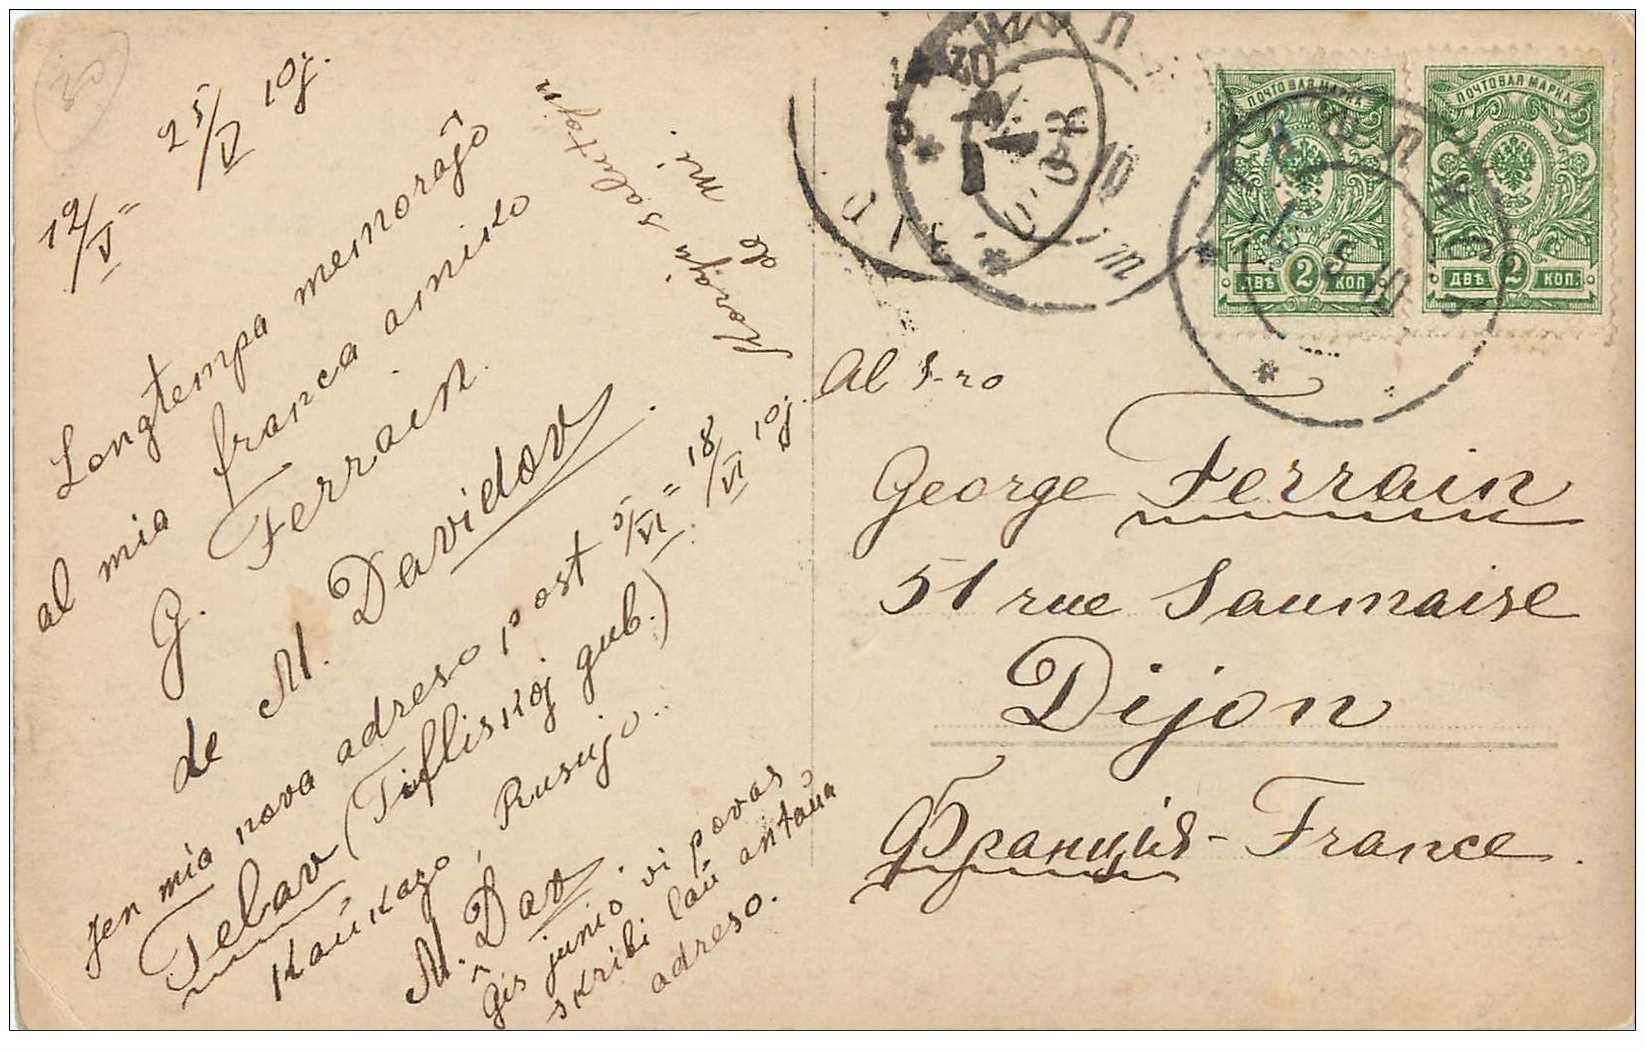 12/V = 25/V 10j.
Longtempa memoraĵo
al mia franca amiko
G. Ferrain.
de M. Davidov.
Jen mia nova adreso post 5/VI = 18/VI 10j.
Telav (Tifliskoj gub.)
Kaŭkazo, Rusujo..
M. Dav.
Ĝis junio vi povas
skribi laŭ antaŭa
adreso.
salutojn
de mi.
ПОЧТОВАЯ МАРКА
ДВѢ 2 КОП.
ПОЧТОВАЯ МАРКА
ДВѢ 2 КОП.
Al S-ro
George Ferrain
51 rue Saumaise
Dijon
Франція - France.